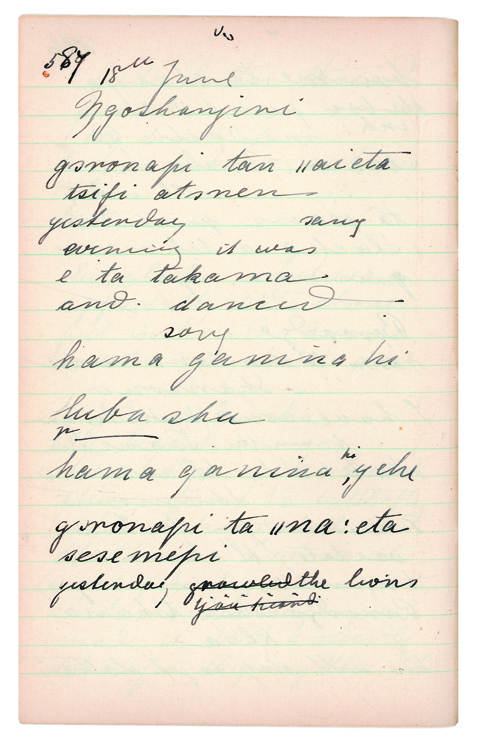 587 18th June
Ngoshanjini
gɜronapi tan ǁaieta
tsifi atsnen
yesterday sang
evening it was
e ta takama
and danced
song
hama ganina hi
luba sha
r
hama ganina hi, yehe
gɜronapi ta ǁna:eta
sesemepi
yesterday growled the lions